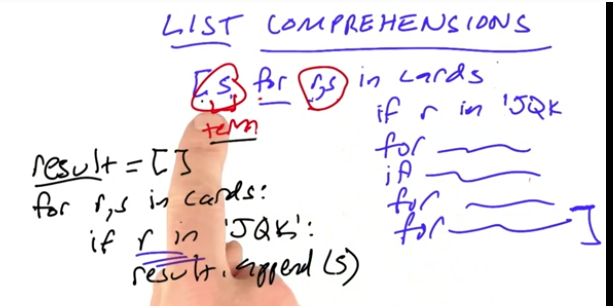 LIST COMPREHENSIONS
[s for r,s in cards
if r in 'JQK
for
if
for
for ]
term
result = []
for r,s in cards:
if r in 'JQK':
result.append(s)